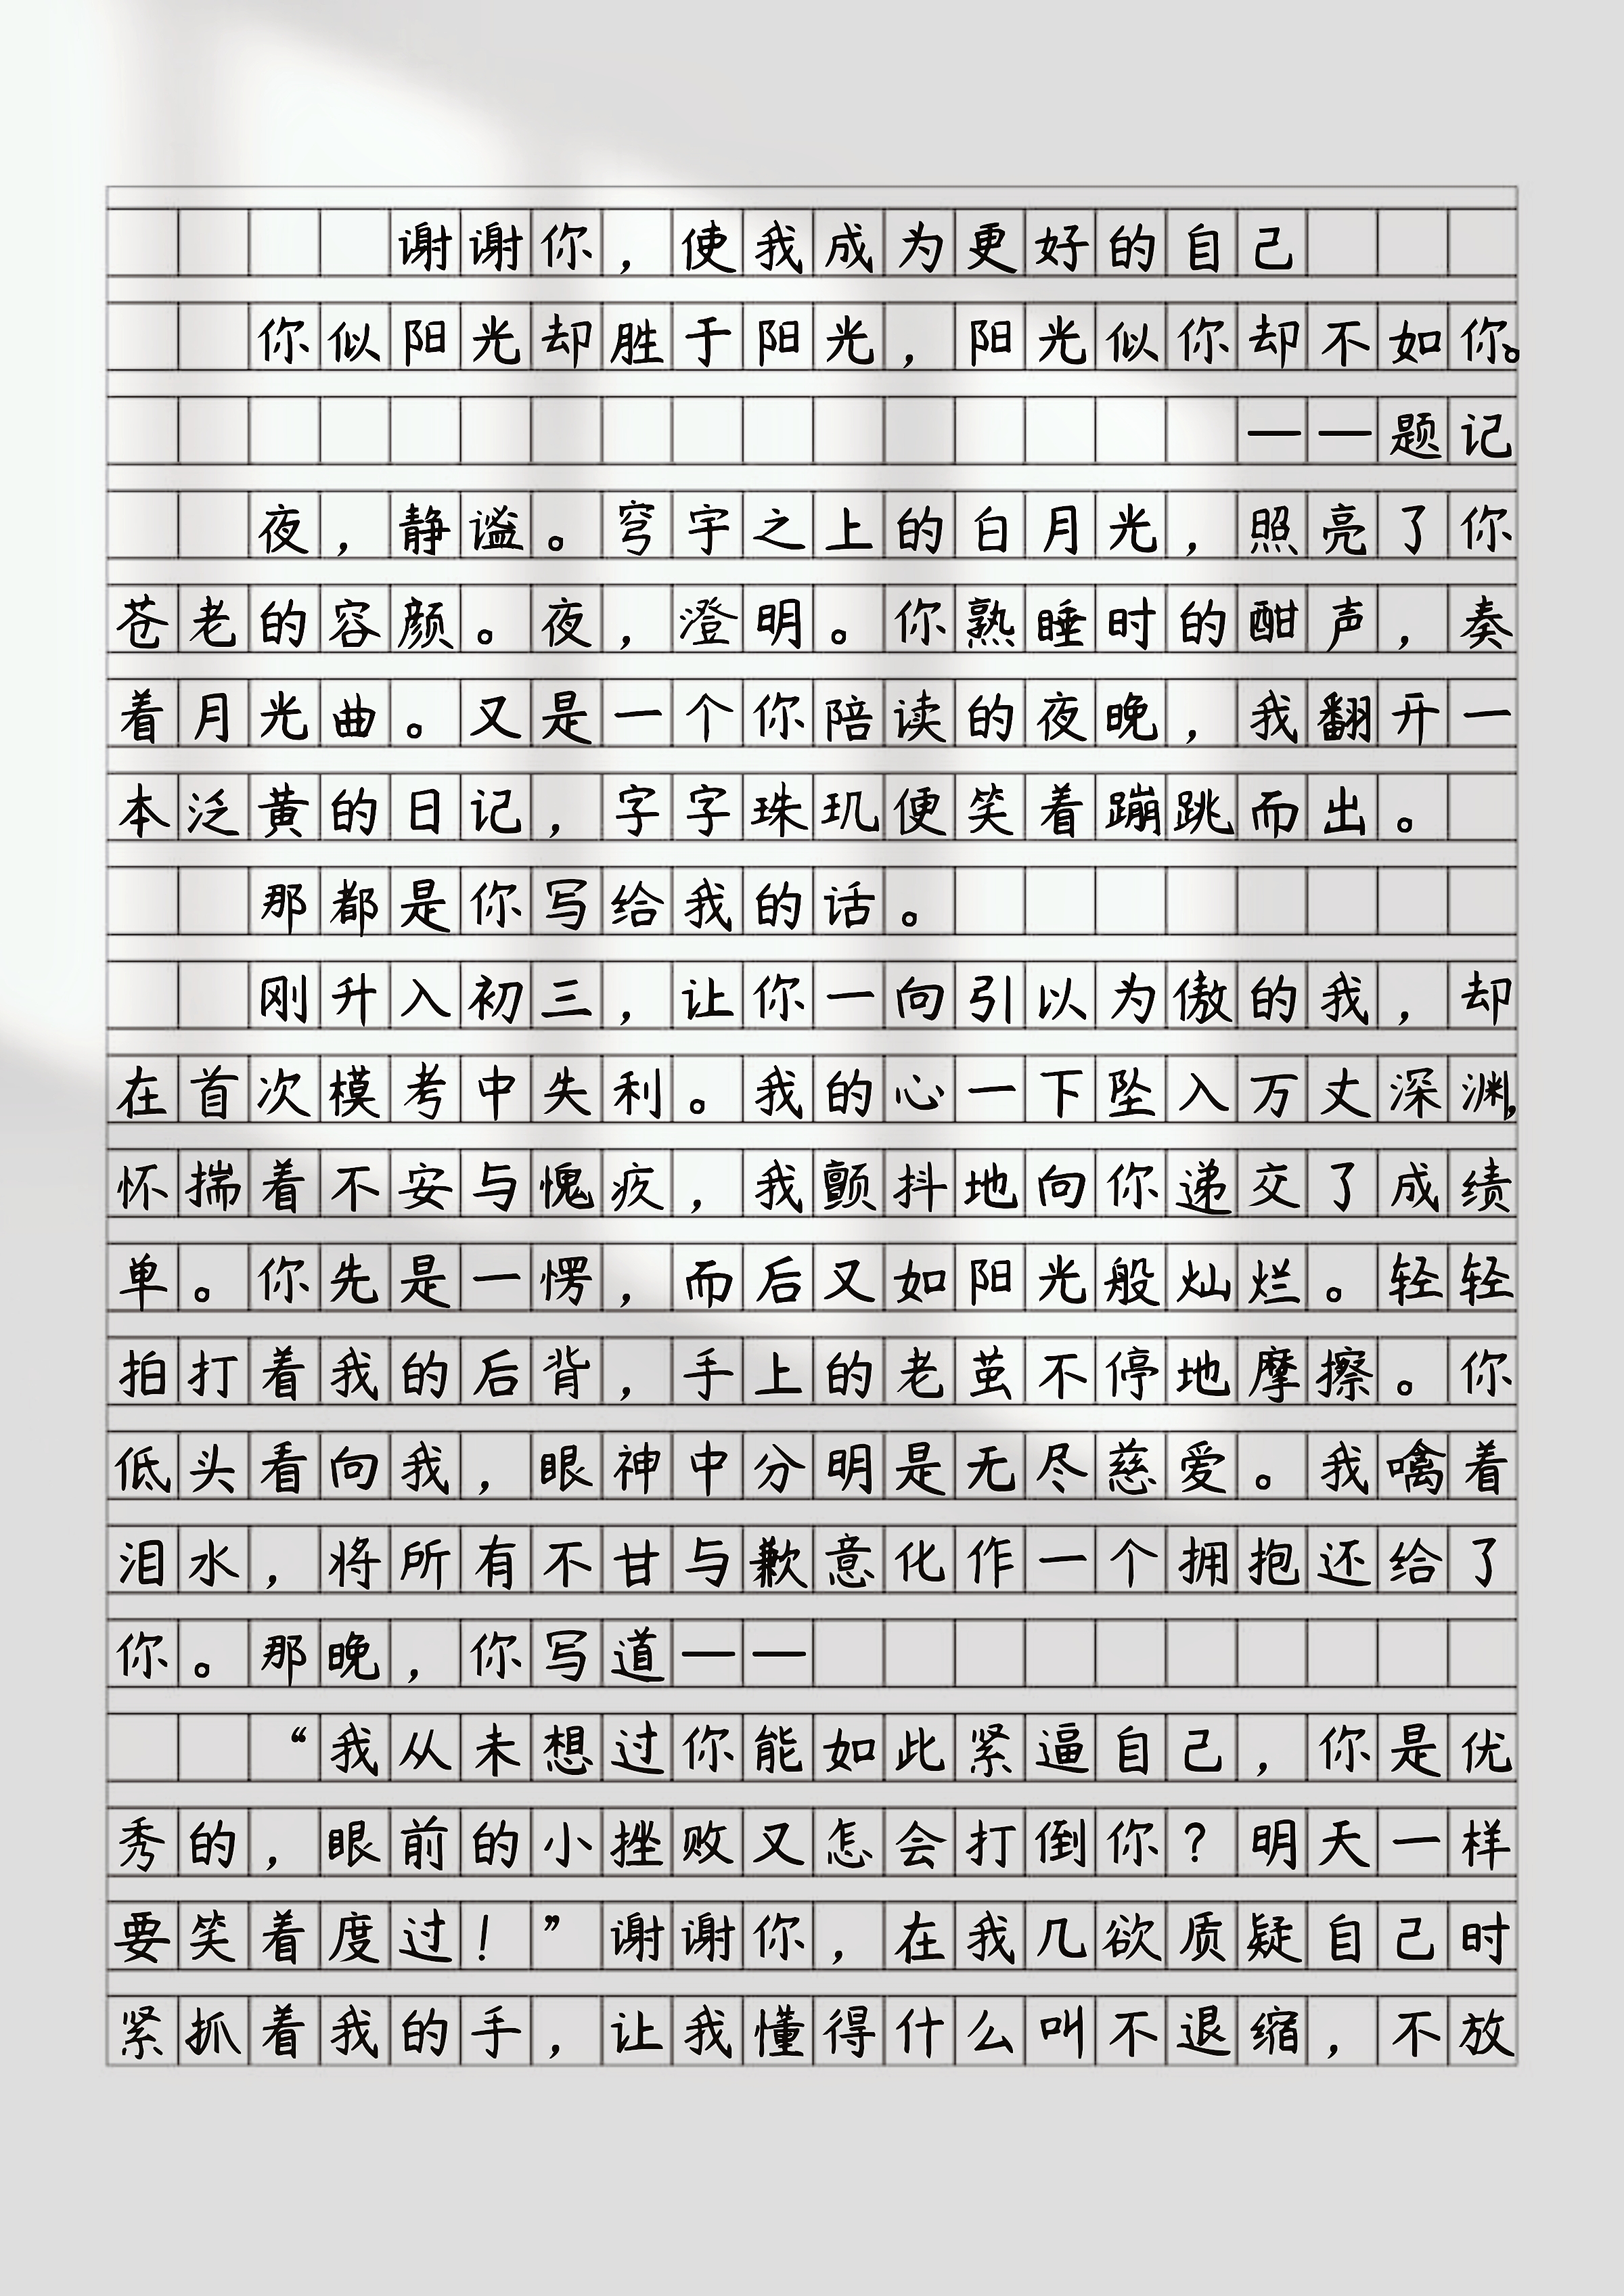 谢谢你，使我成为更好的自己
你似阳光却胜于阳光，阳光似你却不如你。
——题记
夜，静谧。穹宇之上的白月光，照亮了你
苍老的容颜。夜，澄明。你熟睡时的酣声，奏
着月光曲。又是一个你陪读的夜晚，我翻开一
本泛黄的日记，字字珠玑便笑着蹦跳而出。
那都是你写给我的话。
刚升入初三，让你一向引以为傲的我，却
在首次模考中失利。我的心一下坠入万丈深渊，
怀揣着不安与愧疚，我颤抖地向你递交了成绩
单。你先是一愣，而后又如阳光般灿烂。轻轻
拍打着我的后背，手上的老茧不停地摩擦。你
低头看向我，眼神中分明是无尽慈爱。我噙着
泪水，将所有不甘与歉意化作一个拥抱还给了
你。那晚，你写道——
“我从未想过你能如此紧逼自己，你是优
秀的，眼前的小挫败又怎会打倒你？明天一样
要笑着度过！”谢谢你，在我几欲质疑自己时
紧抓着我的手，让我懂得什么叫不退缩，不放